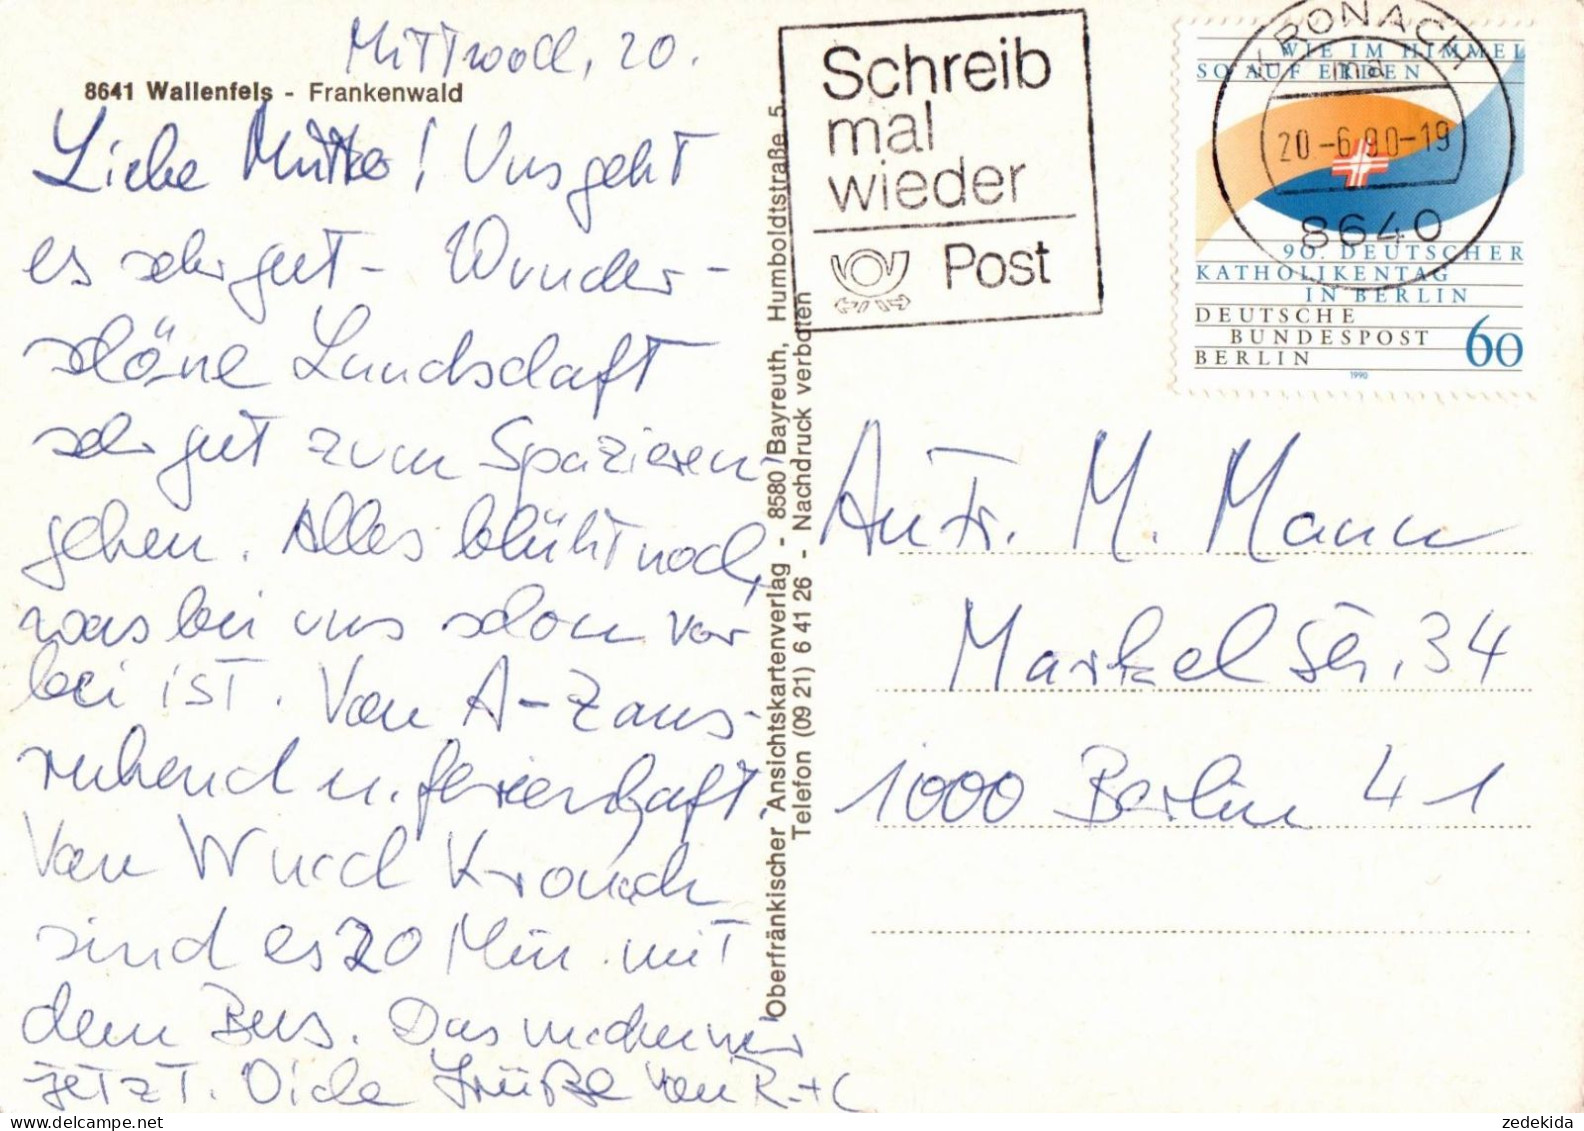 Mittwoch, 20.
8641 Wallenfels - Frankenwald
Liebe Mutter! Uns geht
es sehr gut - Wunder-
schöne Landschaft
sehr gut zum Spazieren-
gehen. Alles blüht noch,
was bei uns schon vor
bei ist. Von A-Z aus-
ruhend u. ferienhaft
Von W nach Kronach
sind es 20 Min. mit
dem Bus. Das machen wir
jetzt. Viele Grüße von R.+C
Oberfränkischer Ansichtskartenverlag - 8580 Bayreuth, Humboldtstraße 5
Telefon (09 21) 6 41 26 - Nachdruck verboten
Schreib
mal
wieder
Post
KRONACH
ma
20.-6.90-19
8640
WIE IM HIMMEL
SO AUF ERDEN
90. DEUTSCHER
KATHOLIKENTAG
IN BERLIN
DEUTSCHE
BUNDESPOST
BERLIN
60
1990
An Fr. M. Mann
Markelstr. 34
1000 Berlin 41
zedekida